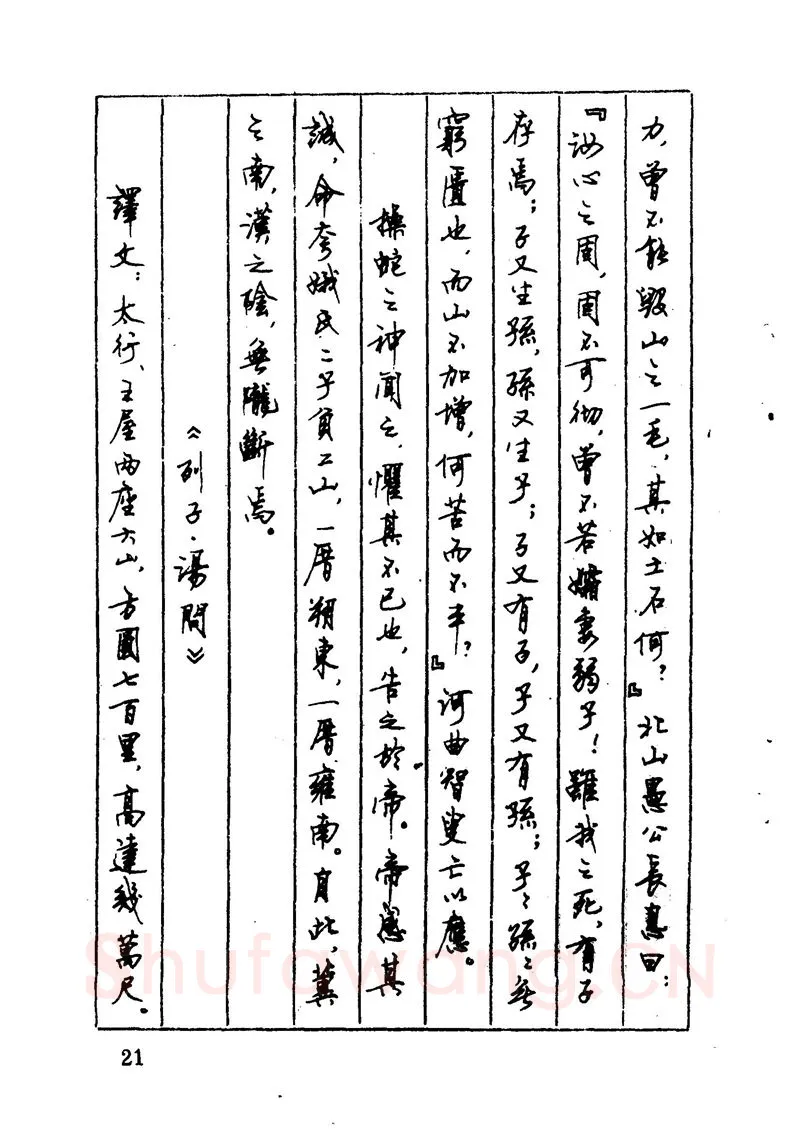 力，曾不能毀山之一毛，其如土石何？』北山愚公長息曰：
『汝心之固，固不可徹，曾不若孀妻弱子！雖我之死，有子
存焉；子又生孫，孫又生子；子又有子，子又有孫；子子孫孫無
窮匱也，而山不加增，何苦而不平？』河曲智叟亡以應。
操蛇之神聞之，懼其不已也，告之於帝。帝感其
誠，命夸娥氏二子負二山，一厝朔東，一厝雍南。自此，冀
之南，漢之陰，無隴斷焉。
《列子·湯問》
譯文：太行、王屋兩座大山，方圓七百里，高達幾萬尺。
21
Shufawang.CN